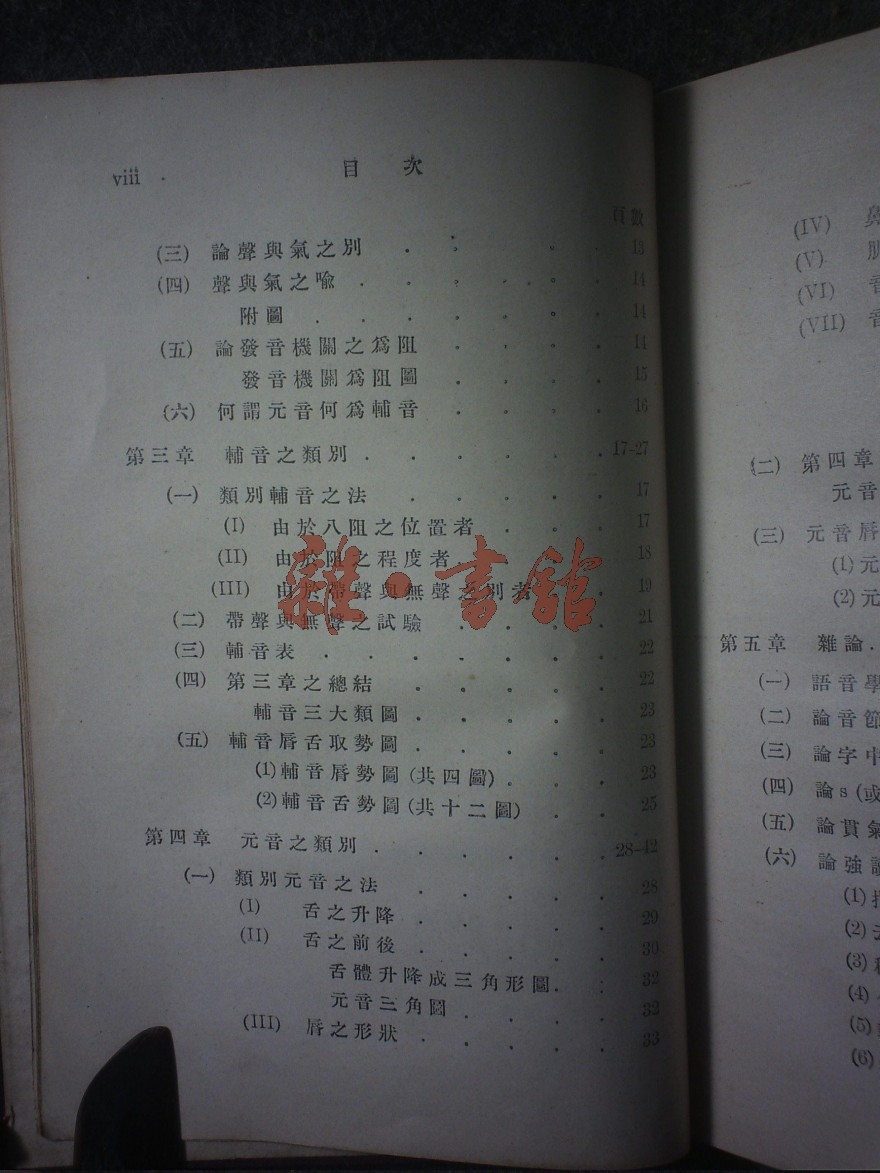 viii
目 次
頁數
(三) 論聲與氣之別 . . . . . 13
(四) 聲與氣之喩 . . . . . . 14
附圖 . . . . . . 14
(五) 論發音機關之爲阻 . . . . 14
發音機關爲阻圖 . . . . 15
(六) 何謂元音何爲輔音 . . . . 16
第三章 輔音之類別 . . . . . . 17-27
(一) 類別輔音之法 . . . . . 17
(I) 由於八阻之位置者 . . . 17
(II) 由於阻之程度者 . . . 18
(III) 由於帶聲與無聲之別者 . . 19
(二) 帶聲與無聲之試驗 . . . . 21
(三) 輔音表 . . . . . . . 22
(四) 第三章之總結 . . . . . 22
輔音三大類圖 . . . . . 23
(五) 輔音唇舌取勢圖 . . . . . 23
(1) 輔音唇勢圖 (共四圖) . . . 23
(2) 輔音舌勢圖 (共十二圖) . . 25
第四章 元音之類別 . . . . . . 28-42
(一) 類別元音之法 . . . . . 28
(I) 舌之升降 . . . . . 29
(II) 舌之前後 . . . . . 30
舌體升降成三角形圖 . . 32
元音三角圖 . . . . 32
(III) 唇之形狀 . . . . . 33
雜·書館
(IV)
(V)
(VI) 音
(VII) 音
(二) 第四章
元音
(三) 元音唇
(1) 元
(2) 元
第五章 雜論 .
(一) 語音學
(二) 論音節
(三) 論字中
(四) 論 s (或
(五) 論貫氣
(六) 論強
(1)
(2)
(3)
(4)
(5)
(6)